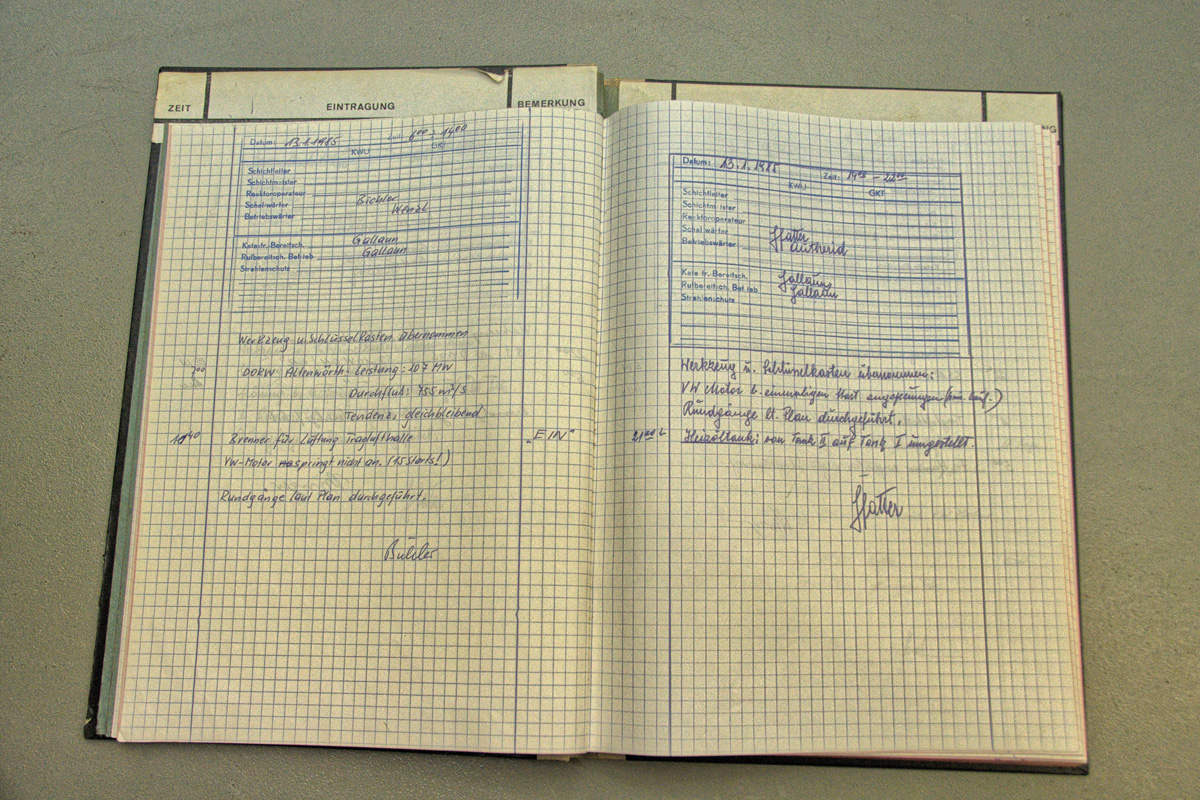 ZEIT EINTRAGUNG BEMERKUNG
Datum: 13.1.1985 Zeit: 6⁰⁰ - 14⁰⁰
KWU GKT
Schichtleiter
Schichtmeister
Reaktoroperateur
Schaltwärter Bichler
Betriebswärter Wenzl
Katastr. Bereitsch. Gallaun
Rufbereitsch. Betrieb Gallaun
Strahlenschutz
Werkzeug u. Schlüsselkasten übernommen
7⁰⁰ DOKW Altenwörth: Leistung: 107 MW
Durchfluß: 755 m³/s
Tendenz: gleichbleibend
Brenner für Lüftung Traglufthalle "EIN"
VW-Motor springt nicht an. (15 Starts!)
Rundgänge laut Plan durchgeführt.
Bichler
Datum: 13.1.1985 Zeit: 14⁰⁰ - 22⁰⁰
KWU GKT
Schichtleiter
Schichtmeister
Reaktoroperateur
Schaltwärter
Betriebswärter
Katastr. Bereitsch. Gallaun
Rufbereitsch. Betrieb Gallaun
Strahlenschutz
Werkzeug u. Schlüsselkasten übernommen:
VW Motor b. einmaligen Start angesprungen
Rundgänge lt. Plan durchgeführt.
21⁰⁰ Heizöltank: von Tank II auf Tank I umgestellt.